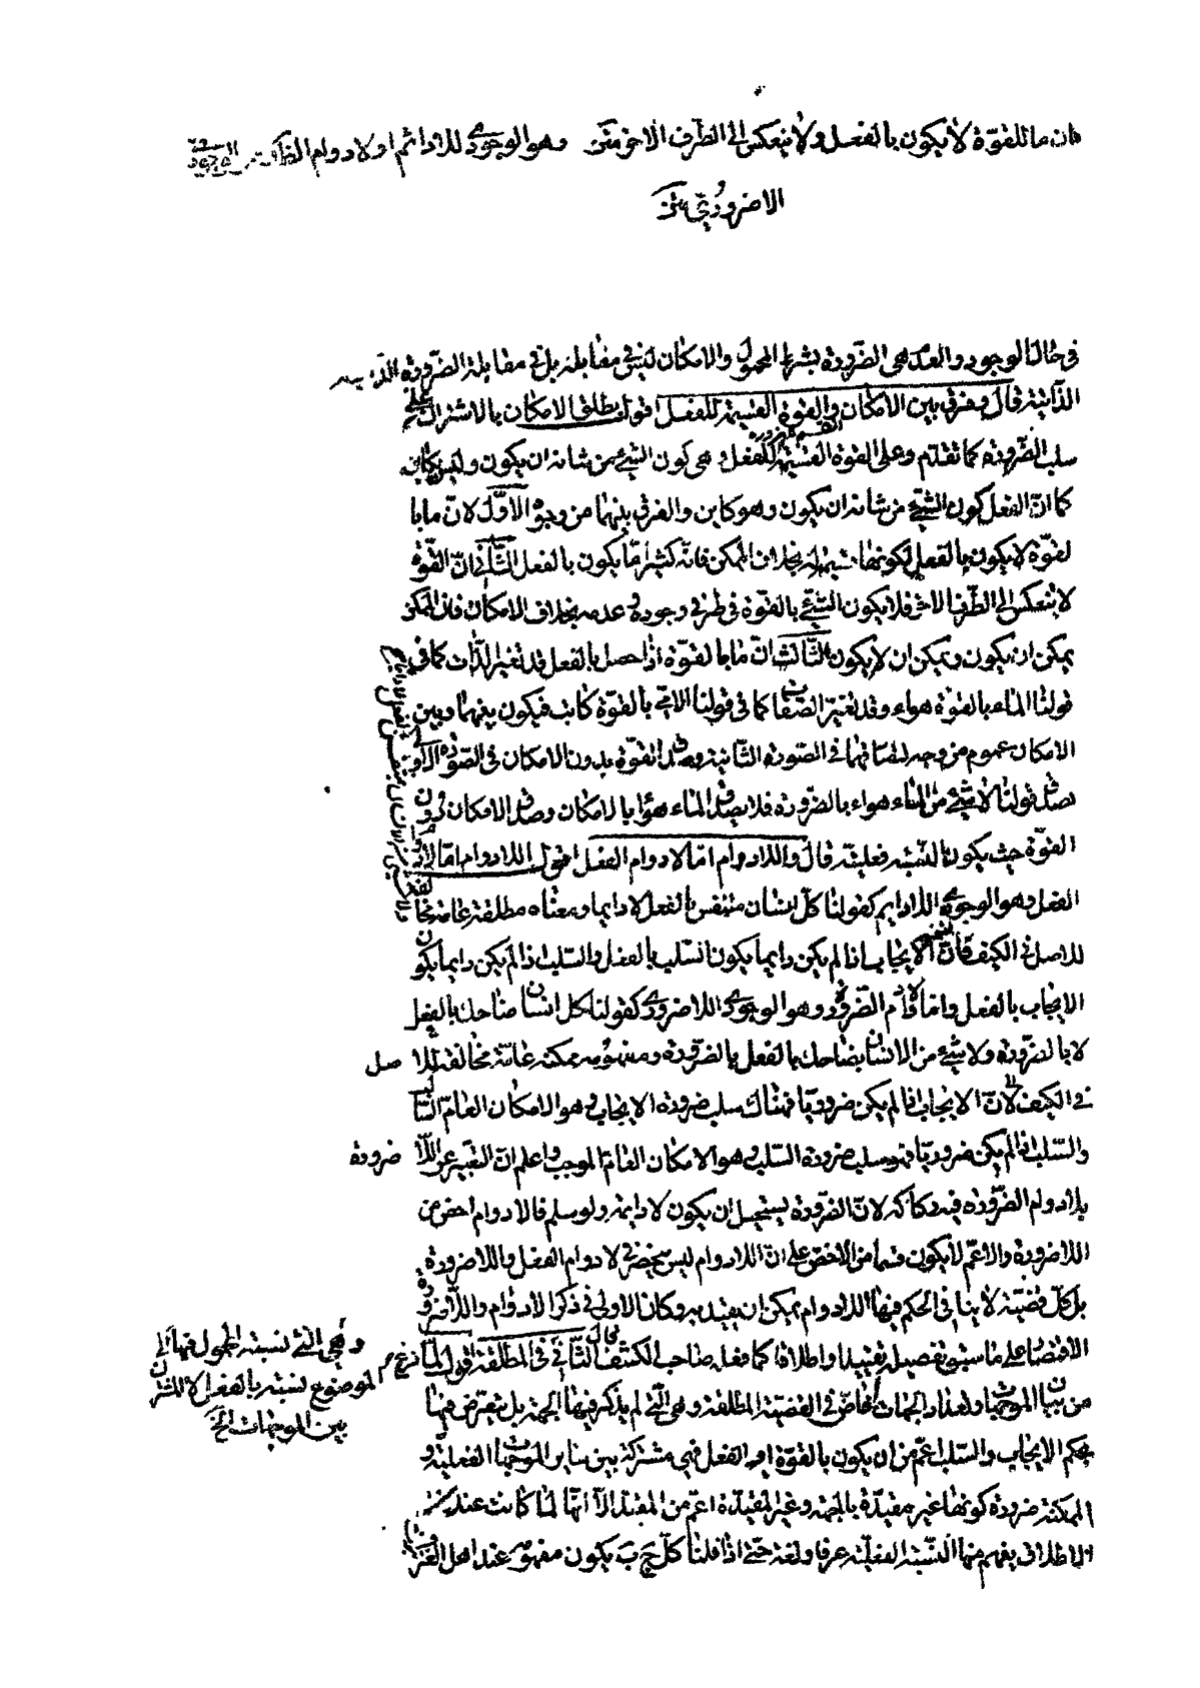 فان ما بالقوة لا يكون بالفعل ولا ينعكس الى الطرف الاخر متن وهو الوجودي اللادائم او لا دوام الضرورة وهو الوجودية
اللاضروري متن
في حال الوجود والعدم هي الضرورة بشرط المحمول والامكان ليس في مقابلته بل في مقابلة الضرورة الذاتيه
الذاتية قال وفرق بين الامكان والقوة القسيمة للفعل اقول يطلق الامكان بالاشتراك على
سلب الضرورة كما تقدم وعلى القوة القسيمة للفعل وهي كون الشيء من شانه ان يكون وليس بكاين
كما ان الفعل كون الشيء من شانه ان يكون وهو كاين والفرق بينهما من وجوه الاول لان ما با
لقوة لا يكون بالفعل لكونها قسيمة له بخلاف الممكن فانه كثيرا ما يكون بالفعل الثاني ان القوة
لا ينعكس الى الطرف الاخر فلا يكون الشيء بالقوة في طرفي وجوده وعدمه بخلاف الامكان فان الممكن
يمكن ان يكون ويمكن ان لا يكون الثالث ان ما بالقوة اذا حصل بالفعل قد تغير الذات كما في
قولنا الماء بالقوة هواء وقد تغير الصفات كما في قولنا الامي بالقوة كاتب فيكون بينهما وبين
الامكان عموم من وجه لتصادقهما في الصورة الثانية وصدق القوة بدون الامكان في الصورة الاولى
لصدق قولنا لا شيء من الماء هواء بالضرورة فلا يصدق الماء هواء بالامكان وصدق الامكان دون
القوة حيث يكون النسبة فعلية قال واللادوام اما لا دوام الفعل اقول اللادوام اما لا دوام
الفعل وهو الوجودي اللادايم كقولنا كل انسان متنفس بالفعل لا دايما ومعناه مطلقة عامة مخالفة
للاصل في الكيف فان الايجاب اذا لم يكن دايما يكون السلب بالفعل والسلب اذا لم يكن دايما يكون
الايجاب بالفعل واما لا دوام الضرورة وهو الوجودي اللاضروري كقولنا كل انسان ضاحك بالفعل
لا بالضرورة ولا شيء من الانسان بضاحك بالفعل لا بالضرورة ومفهومه ممكنة عامة مخالفة للاصل
في الكيف لان الايجاب اذا لم يكن ضروريا فهناك سلب ضرورة الايجاب وهو الامكان العام السالب
والسلب اذا لم يكن ضروريا فهو سلب ضرورة السلب وهو الامكان العام الموجب واعلم ان التعبير عن اللاضرورة
بلادوام الضرورة فيه ركاكة لان الضرورة يستحيل ان يكون لا دايمة ولو سلم فاللادوام اخص من
اللاضرورة والاعم لا يكون قسما من الاخص على ان اللادوام ليس بمنحصر في لا دوام الفعل واللاضرورة
بل كل قضية لا ينافي الحكم فيها اللادوام يمكن ان يقيد به وكان الاولى في ذكر اللادوام واللاضرورة
الاقتصار على ما سبق تفصيله تقييدا واطلاقا كما فعله صاحب الكشف قال الثاني في المطلقة اقول لما فرغ
من بيان الموجهات وتعداد الجهات خاض في القضية المطلقة وهي التي لم يذكر فيها الجهة بل يتعرض فيها
بحكم الايجاب والسلب اعم من ان يكون بالقوة او الفعل فهي مشتركة بين ساير الموجهات الفعلية و
الممكنة ضرورة كونها غير مقيدة بالجهة وغير المقيدة اعم من المقيد الا انها لما كانت عند
الاطلاق يفهم منها النسبة الفعلية عرفا ولغة حتى اذا قلنا كل ج ب يكون مفهومه عند اهل العرف
وهي التي نسبة المحمول فيها الى
الموضوع نسبة بالفعل لا المشترك
بين الموجهات الخ